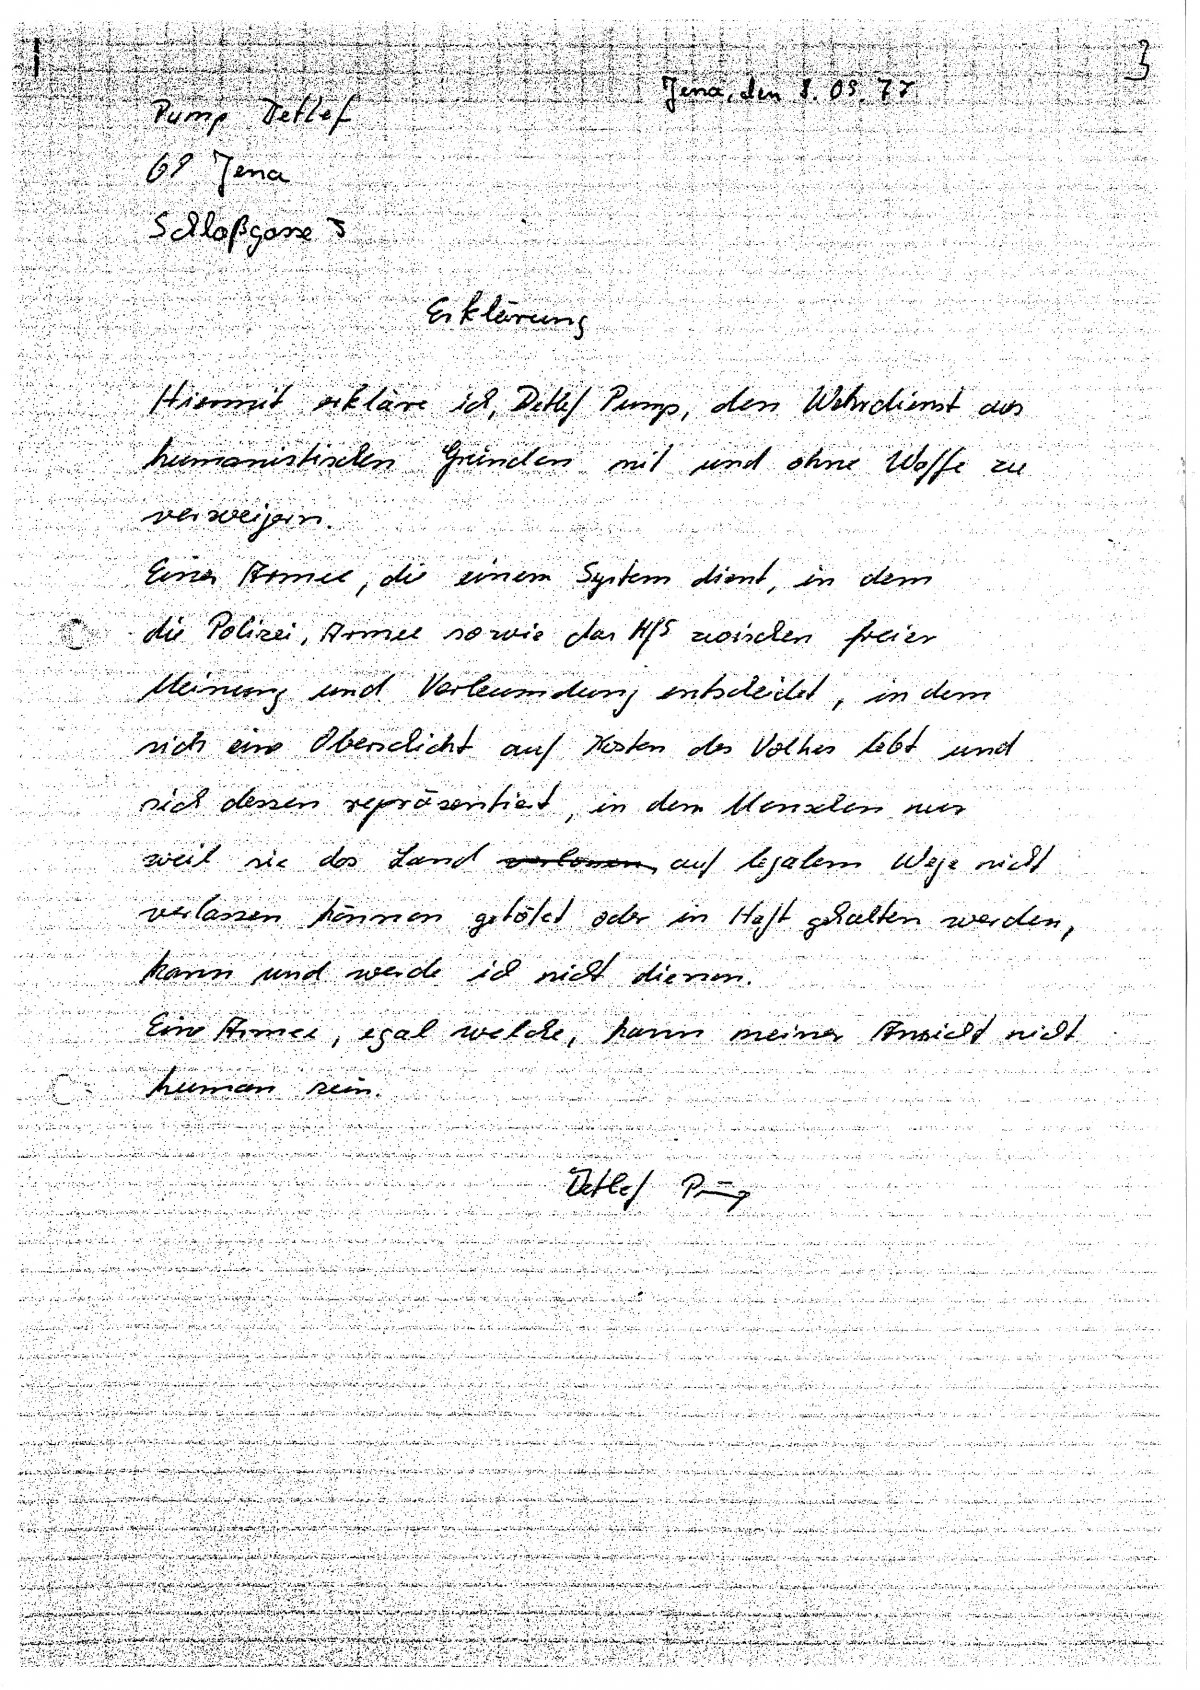 3
Jena, den 8.09.77
Pump Detlef
69 Jena
Schloßgasse 5
Erklärung
Hiermit erkläre ich, Detlef Pump, den Wehrdienst aus
humanistischen Gründen mit und ohne Waffe zu
verweigern.
Einer Armee, die einem System dient, in dem
die Polizei, Armee sowie das MfS zwischen freier
Meinung und Verleumdung entscheidet, in dem
sich eine Oberschicht auf Kosten des Volkes lebt und
sich dessen repräsentiert, in dem Menschen nur
weil sie das Land verlassen auf legalem Wege nicht
verlassen können getötet oder in Haft gehalten werden,
kann und werde ich nicht dienen.
Eine Armee, egal welche, kann meiner Ansicht nicht
human sein.
Detlef Pump